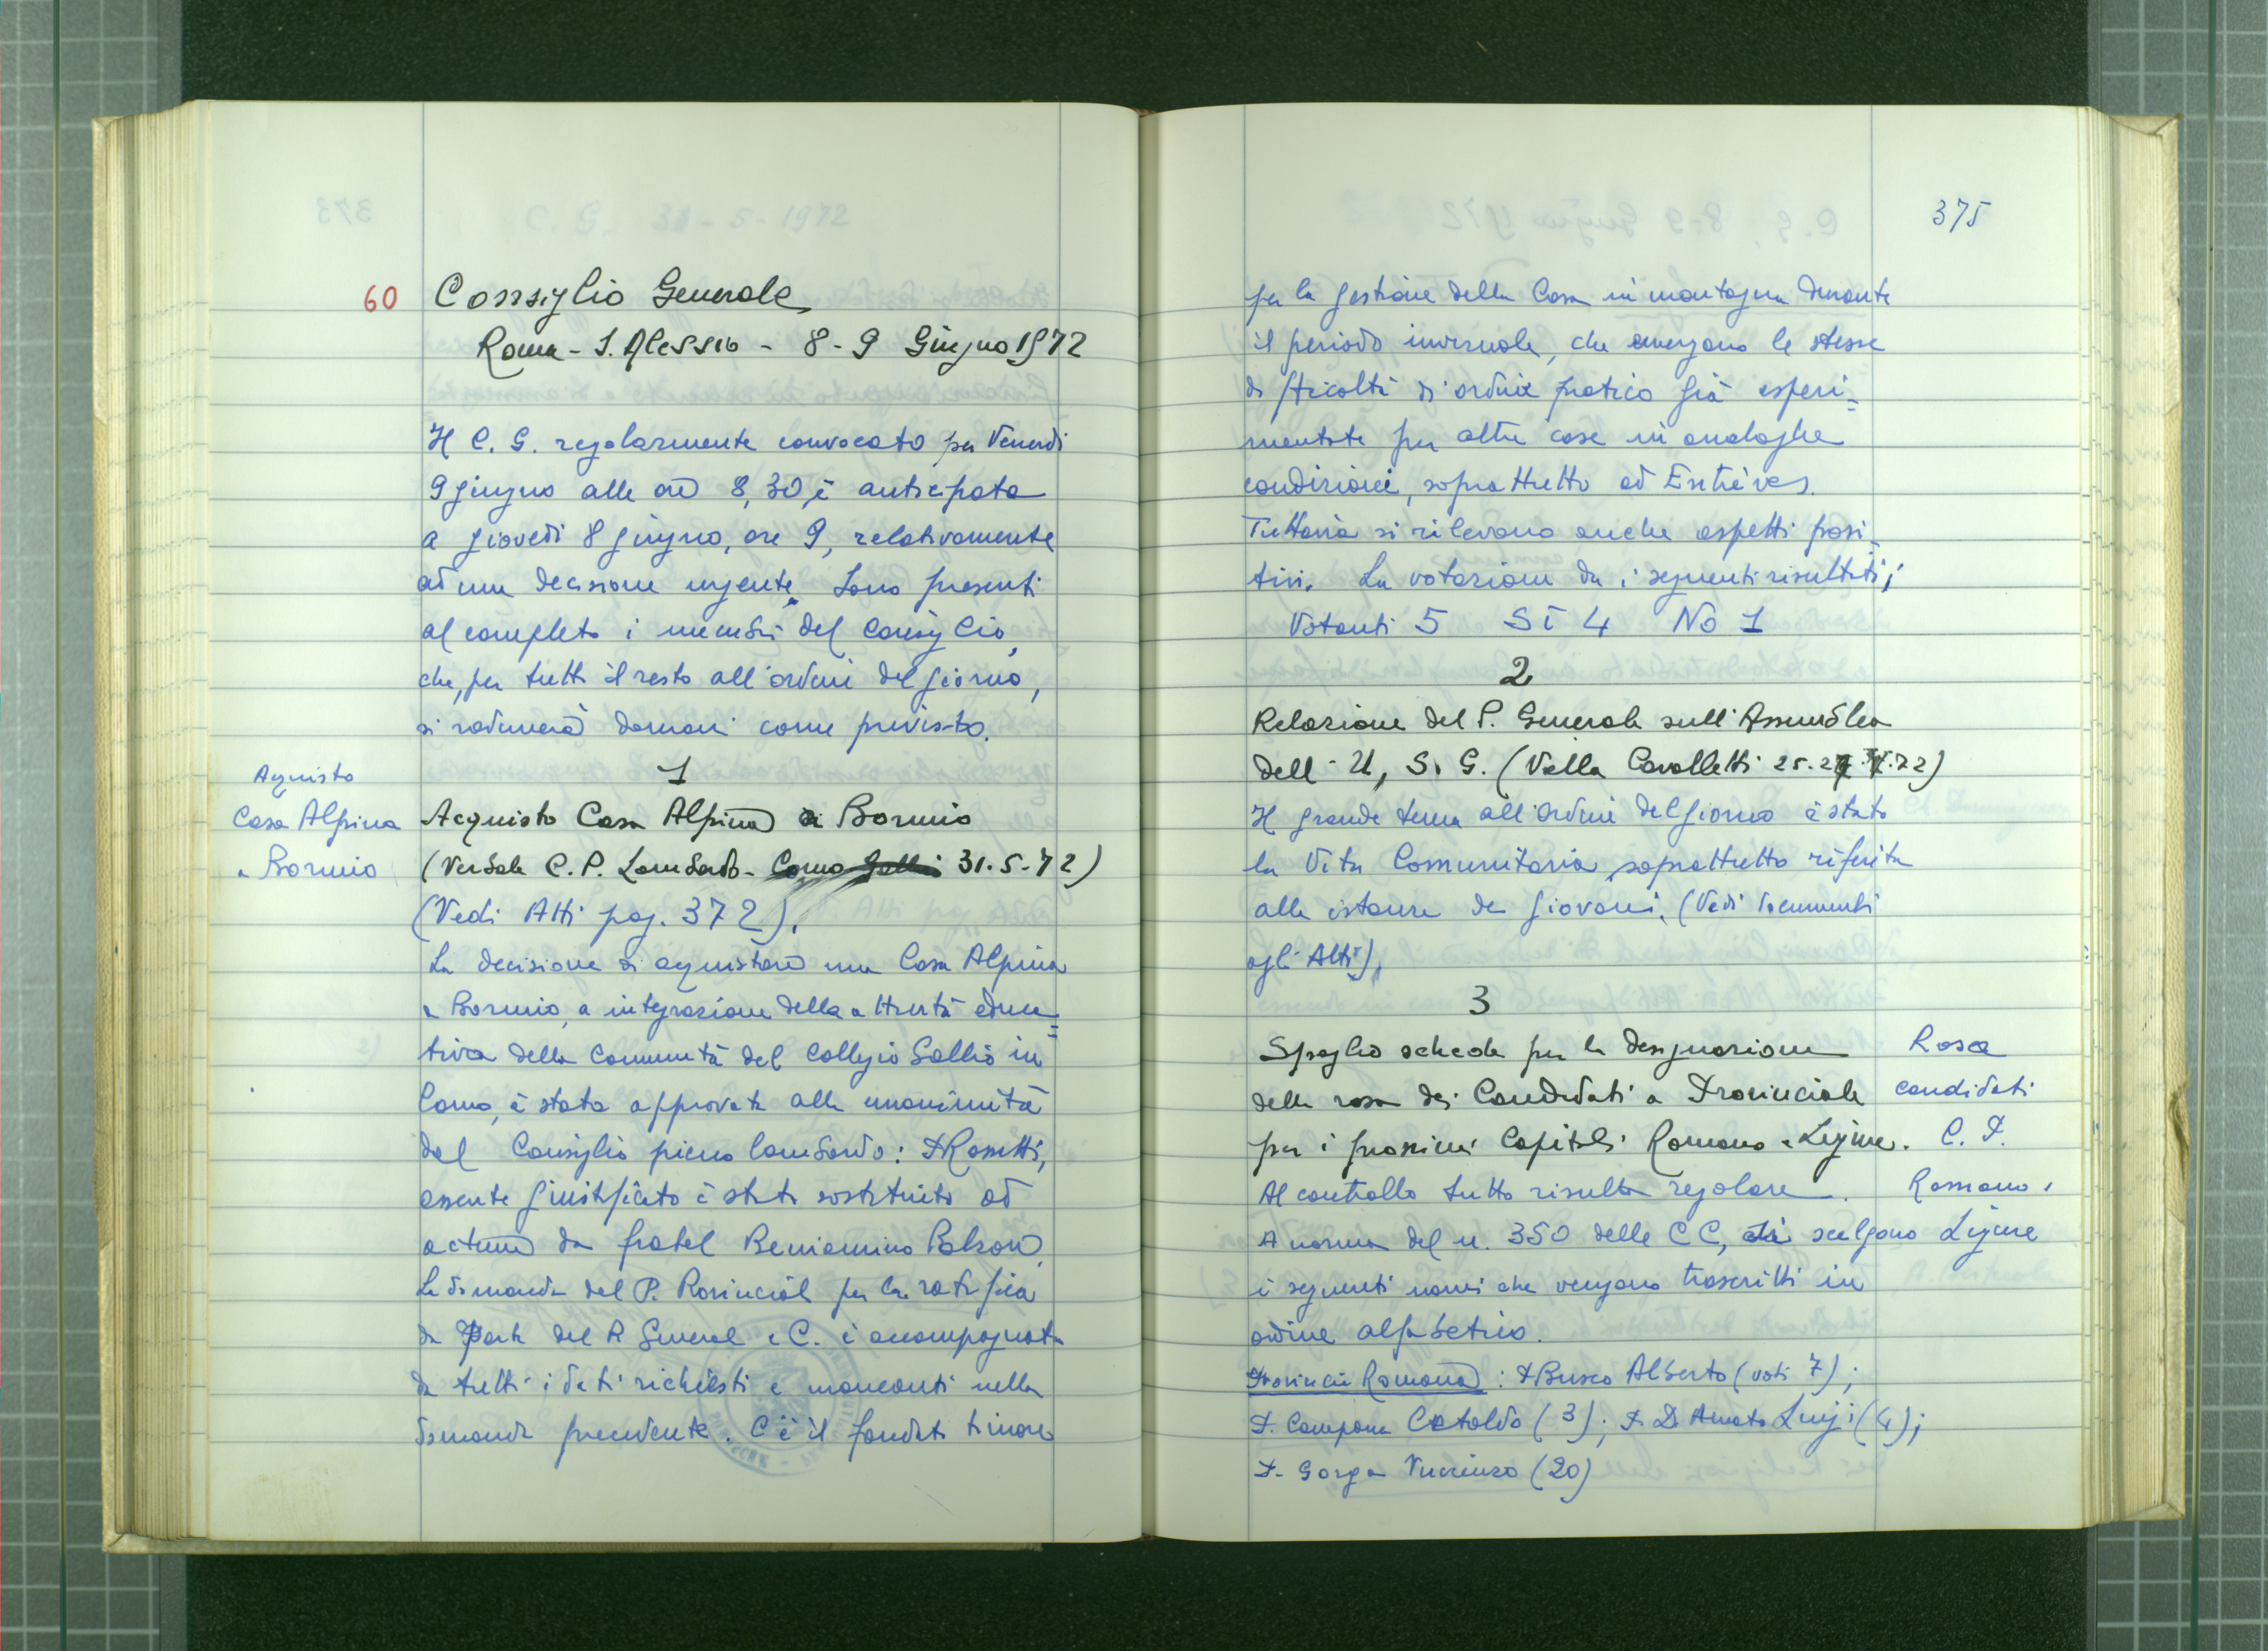 60 Consiglio Generale
Roma - S. Alessio - 8 - 9 Giugno 1972
Il C. G. regolarmente convocato per Venerdì
9 giugno alle ore 8,30, è anticipato
a giovedì 8 giugno, ore 9, relativamente
ad una decisione urgente. Sono presenti
al completo i membri del Consiglio,
che, per tutto il resto all'ordine del giorno,
si radunerà domani come previsto.
Aquisto
Casa Alpina
a Bormio
1
Acquisto Casa Alpina a Bormio
(Verbale C. P. Lombardo - Como Gallio 31-5-72)
(Vedi Atti pag. 372).
La decisione di acquistare una Casa Alpina
a Bormio, a integrazione della attività educa=
tiva della Comunità del Collegio Gallio in
Como, è stata approvata alla unanimità
dal Consiglio pieno lombardo: P. Rossetti,
assente giustificato è stato sostituito ad
actum da fratel Beniamino
La domanda del P. Provincial per la ratifica
da parte del P. General e C. è accompagnata
da tutti i dati richiesti e mancanti nella
domanda precedente. C'è il fondato timore
375
per la gestione della Casa in montagna durante
il periodo invernale, che emergano le stesse
difficoltà di ordine pratico già esperi=
mentate per altre case in analoghe
condizioni, soprattutto ad Entrèves.
Tuttavia si rilevano anche aspetti posi-
tivi. La votazione da i seguenti risultati;
Votanti 5 Sì 4 No 1
2
Relazione del P. Generale sull'Assemblea
dell'U, S. G. (Villa Cavalletti 25.27.72)
Il grande tema all'ordine del giorno è stato
la Vita Comunitaria, soprattutto riferita
alle istanze dei giovani. (Vedi documenti
agli Atti).
3
Spoglio schede per la designazione
della rosa dei Candidati a Provinciale
per i prossimi Capitoli Romano e Ligure.
Rosa
candidati
C. P.
Romano e
Ligure
Al controllo tutto risulta regolare.
A norma del n. 350 delle CC, si scelgono
i seguenti nomi che vengono trascritti in
ordine alfabetico.
Provincia Romana: P. Busco Alberto (voti 7);
P. Campana Cataldo (3); P. D'Amato Luigi (4);
P. Gorga Vincenzo (20)